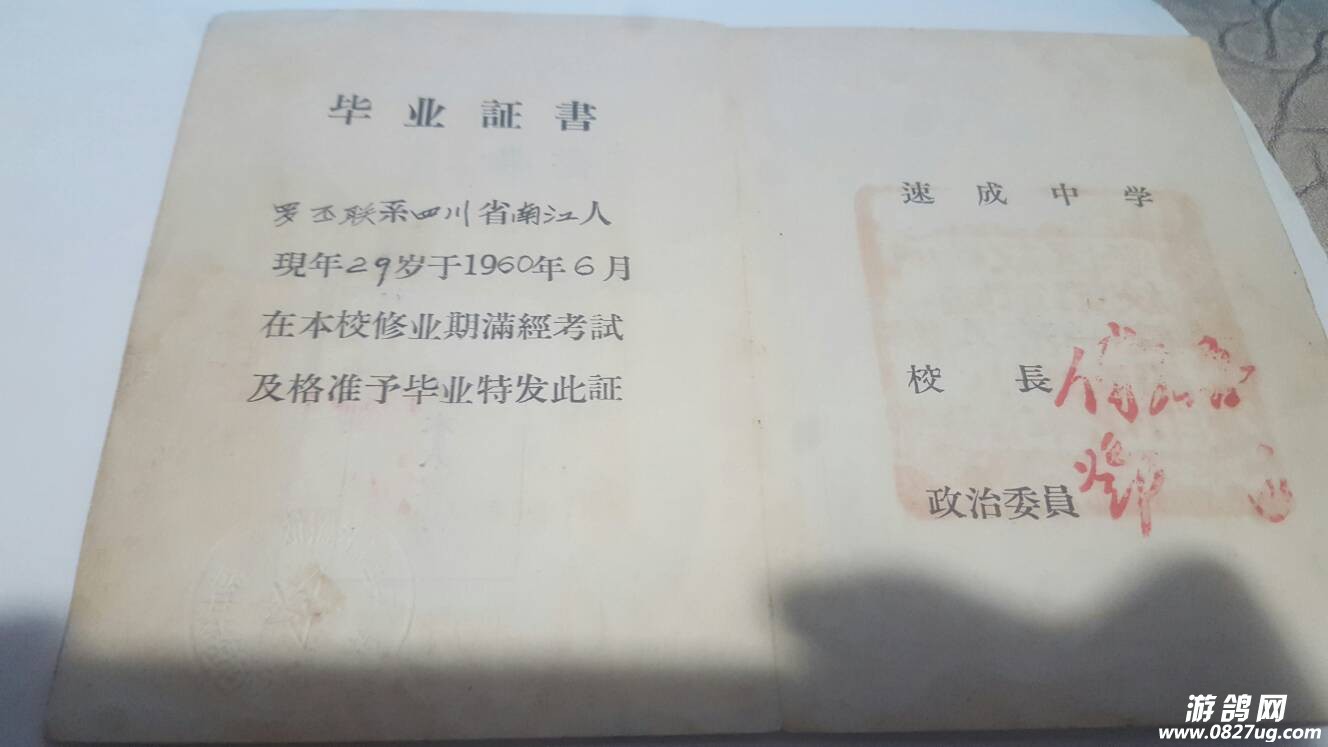 毕业証書
罗丕联系四川省南江人
現年29岁于1960年6月
在本校修业期滿經考試
及格准予毕业特发此証
速成中学
校長
政治委員
游鸽网
www.0827ug.com